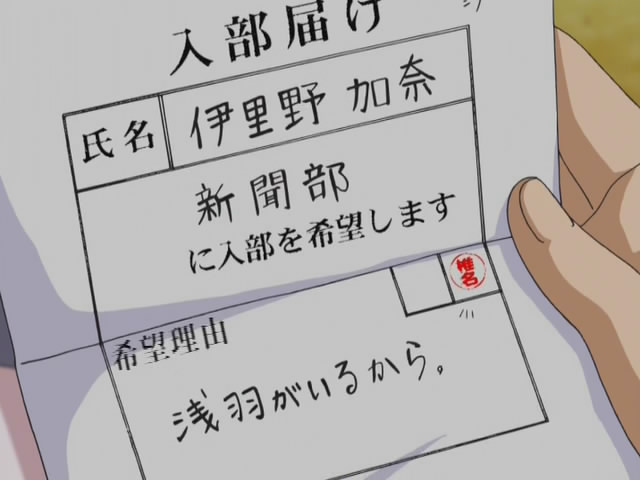 入部届け
氏名 伊里野 加奈
新聞部
に入部を希望します
椎名
希望理由
浅羽がいるから。